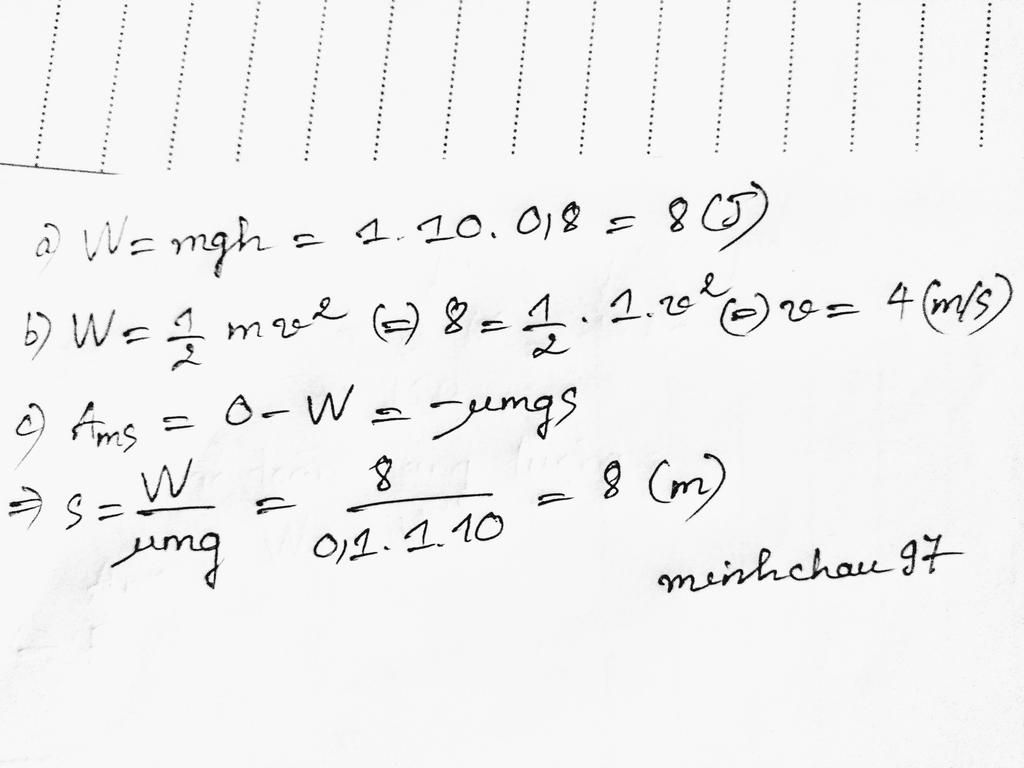 a) W = mgh = 1.10.0,8 = 8 (J)
b) W = 1/2 mv² (=) 8 = 1/2 . 1.v² (=) v = 4 (m/s)
c) Ams = 0 - W = -μmgs
=> s = W/μmg = 8/0,1.1.10 = 8 (m)
minhchau 97